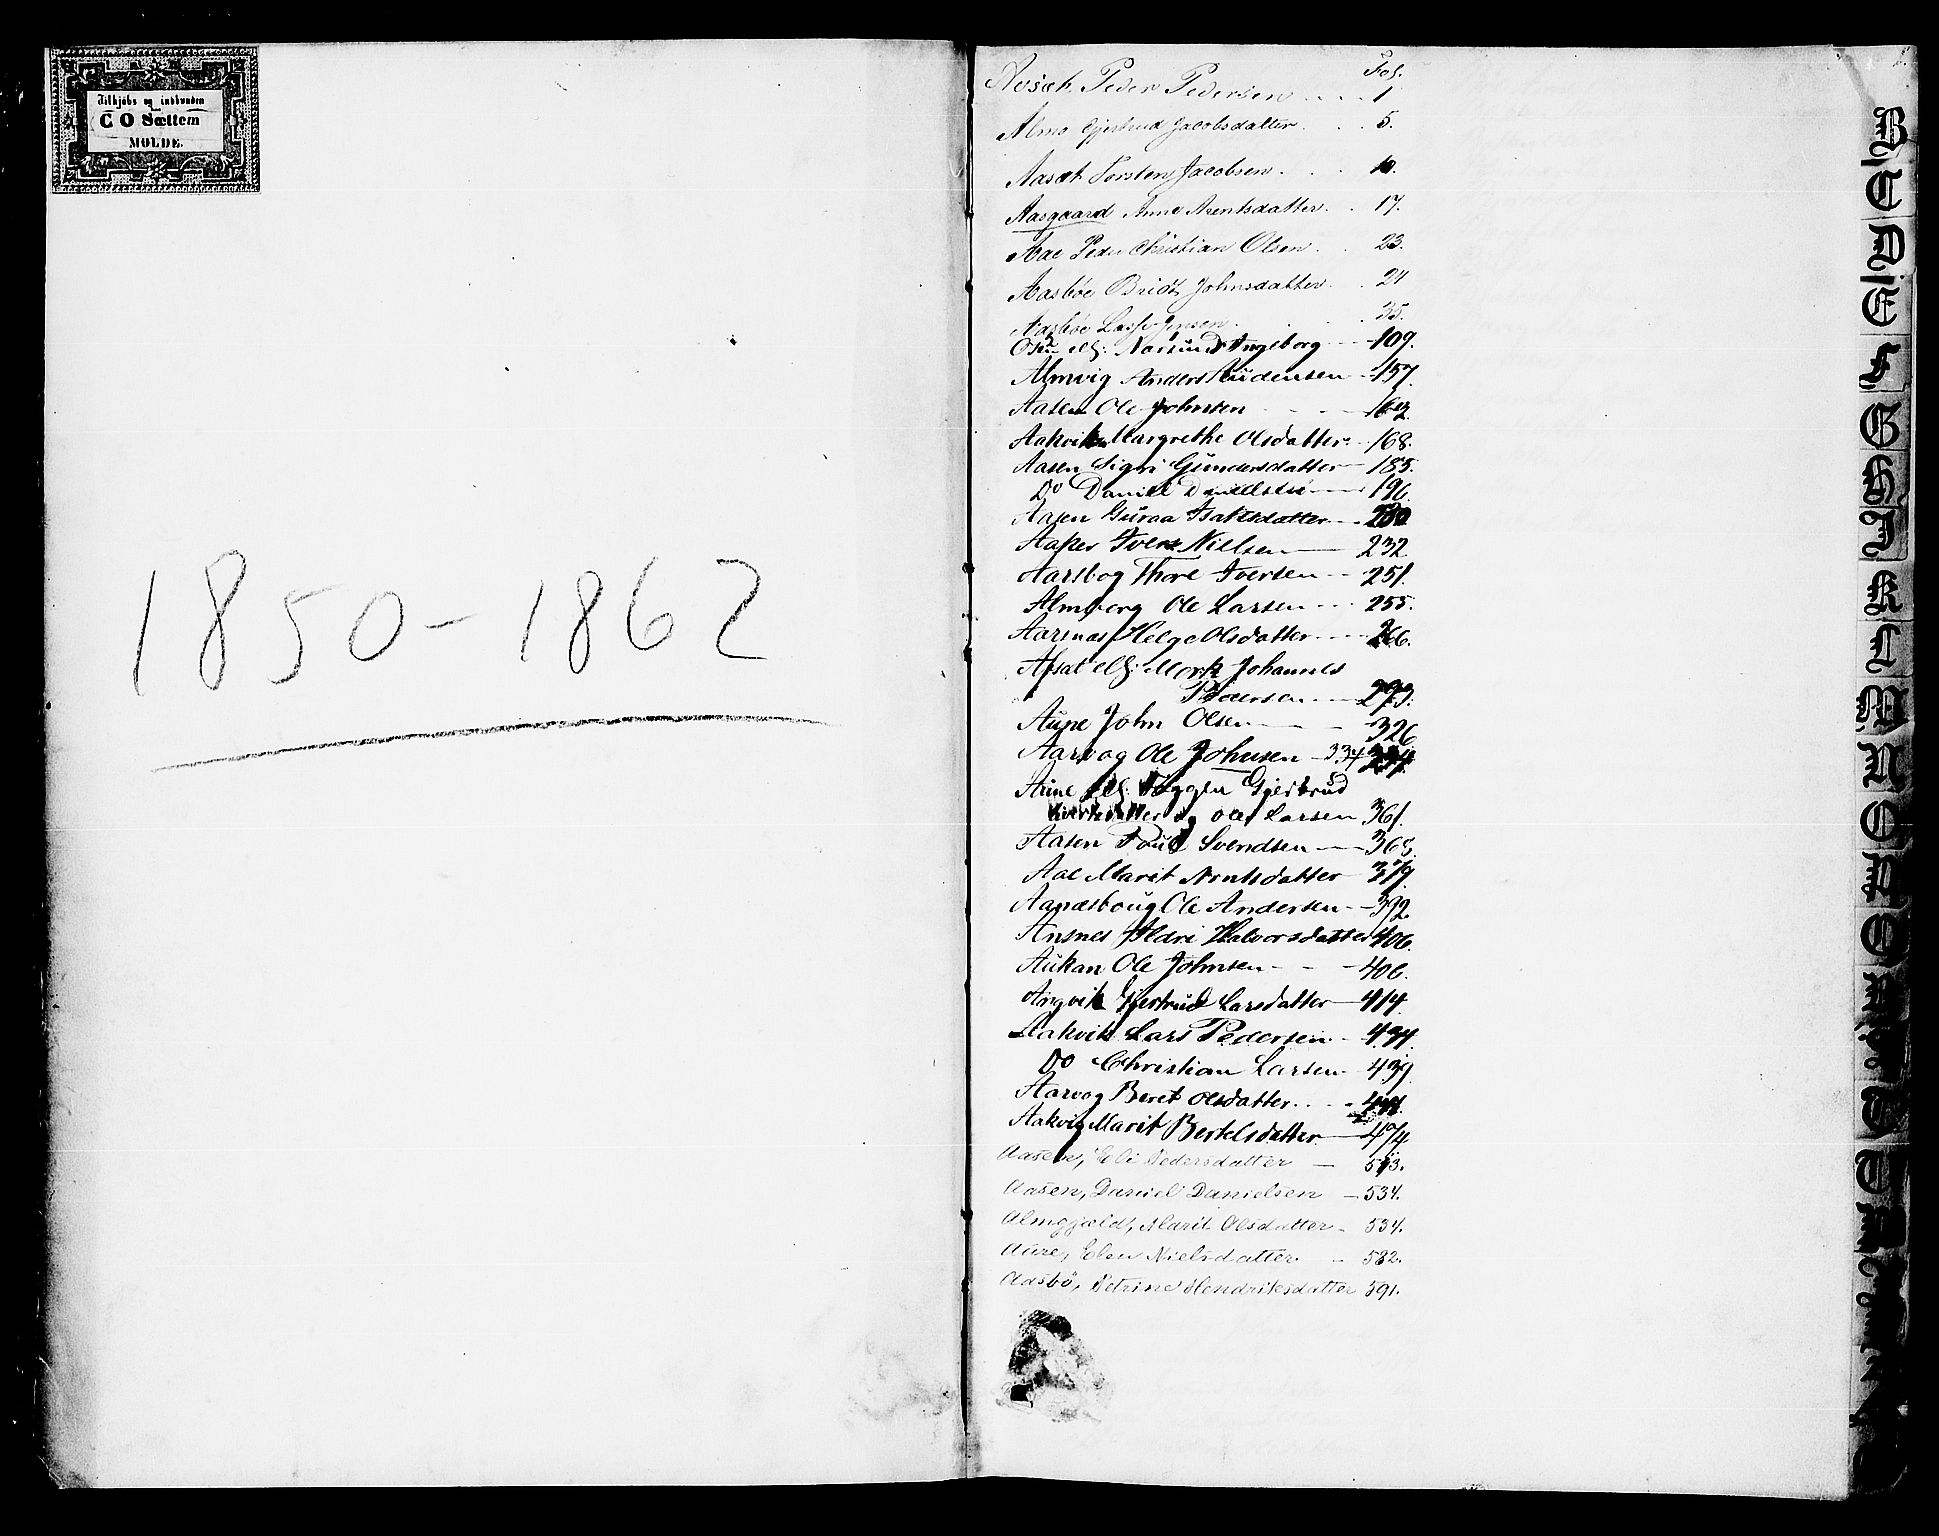 Tilkjøbs og indbunden
C O Sættem
MOLDE.
1850-1862
Fol.
Peder Pedersen .... 1
Almo Gjertrud Jacobsdatter. . . 5.
Aasæt Torsten Jacobsen. . .
Aasgaard Anne Arentsdatter. . 17.
Aae Peder Christian Olsen. . 23.
Aasbøe Johnsdatter. . 24
Aasbøe Jensen. . . . 35.
Ingeborg --- 109.
Almvig Anders Knudensen - 157.
Aasen Ole Johnsen - - - 162
Aakvik Margrethe Olsdatter - 168.
Aasen Sigri Gundersdatter - 185.
Do Daniel Danielsen - 196.
Aasen Guroa Isaksdatter -
Iver Nielsen - 232
Thore Iversen - - 251.
Almberg Ole Larsen - - - 255.
Aarsnas Helge Olsdatter - - - 266.
Johannes
Pedersen - 293.
Aune John Olsen - - 326
Aarvog Ole Johnsen - 334
Gjertrud
og Ole Larsen 361.
Aasen Poul Svendsen - 368.
Aae Marit Arntsdatter 379.
Ole Andersen - - 392
Ansnes Ildri Halvorsdatter 406.
Aukan Ole Johnsen - - - 406.
Angvik Gjertrud Larsdatter - 414.
Aakvik Lars Pedersen - 434.
Do Christian Larsen - 439
Aarvog Beret Olsdatter. . -
Aakvig Marit Bertelsdatter - 474
Aasen, Eli Pedersdatter - 513.
Aasen, Daniel Danielsen - 534.
Almgjæld, Marit Olsdatter - 534.
Aure, Elen Nielsdatter - 582.
Aasbö, Petrine Hendriksdatter 591.
A
B
C
D
E
F
G
H
I
K
L
M
N
O
P